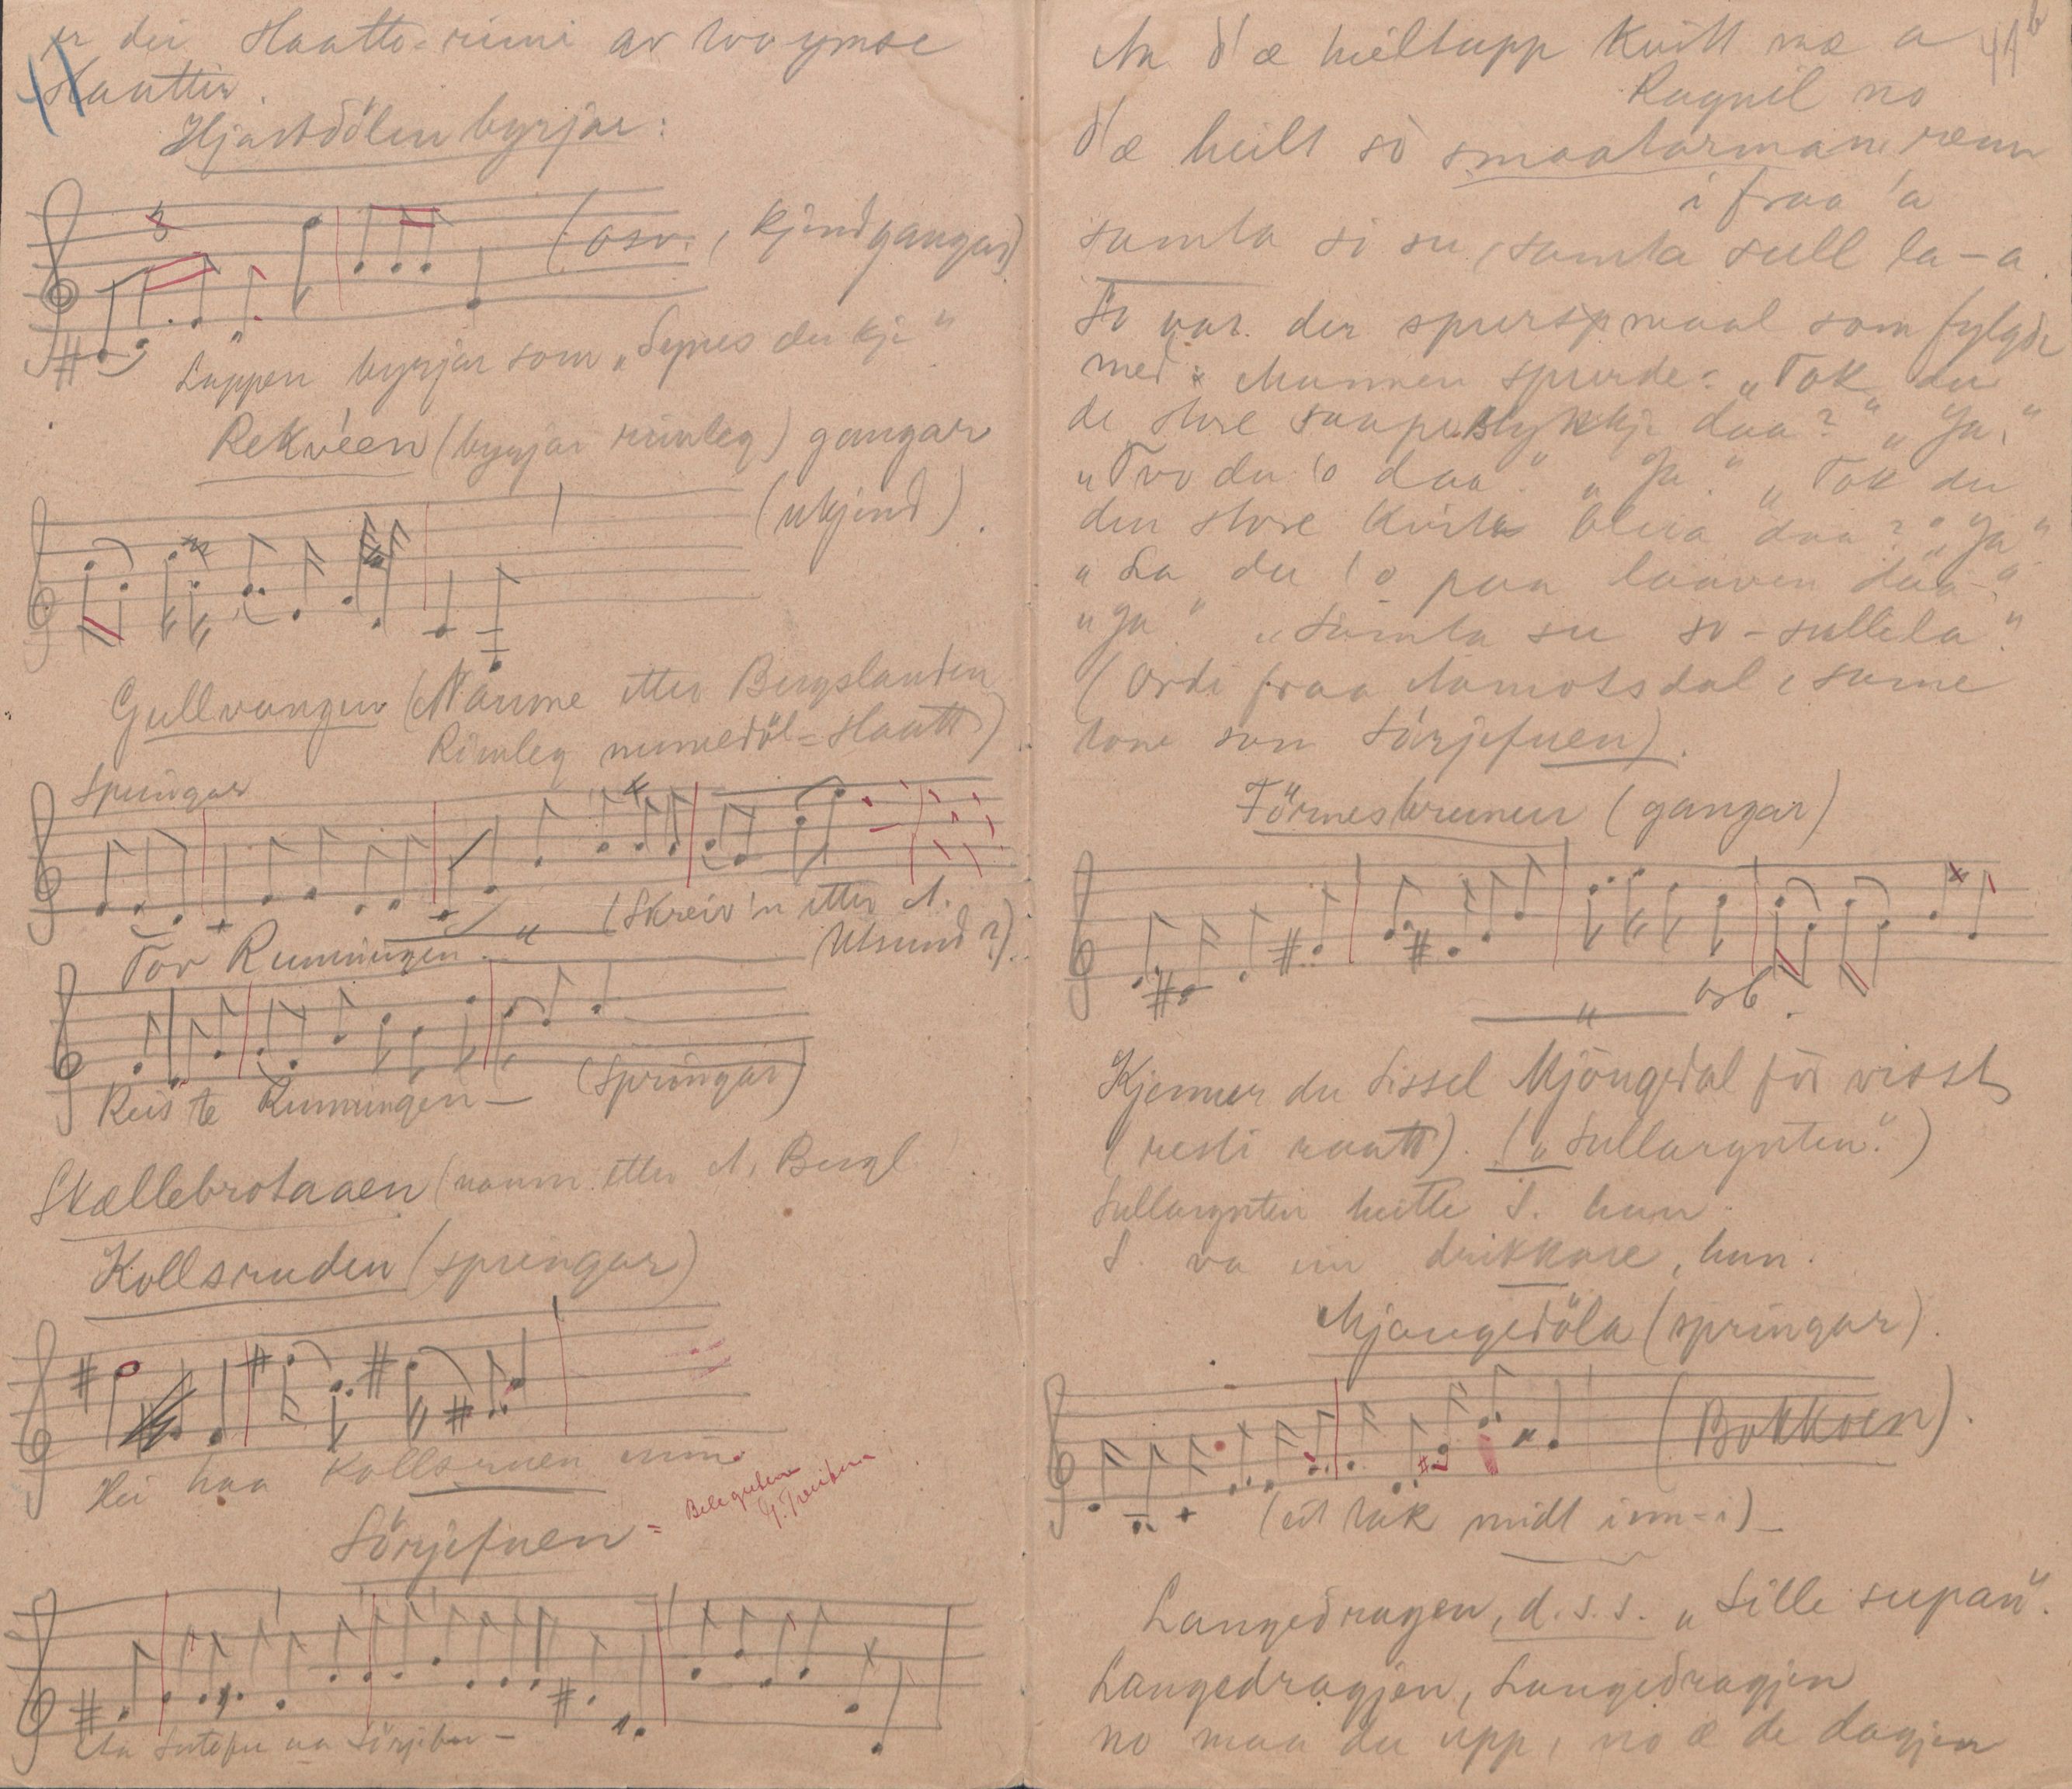 er dei Slaatte-rimi av tvo ymse
Slaattir.
Hjartdölen byrjar:
(osv., kjendgangar)
Luppen byrjar som „Synes du kji"
Rekveen (byrjar rimleg) gangar
(ukjend).
Gullvangen (Namne etter Bergslanden
Rimleg numedöl-slaatt)
Springar
(Skreiv'n etter A.
Ulsund?).
Tov Rumningen
Reis te Rumningen – (springar)
Skællebrotaaen (namn etter A. Bergl
Kollsruden (springar)
Hei haa Kollsruen min
Sörjefuen =
Aa Sutefu aa Sörjefu –
41b
Aa d'æ heiltupp kvitt mæ a
Ragnil no
d'æ heilt so smaatarmane renn
i fraa 'a
sumla si su, sumla sull la-a.
So var der spursmaal som fylgde
med: Mannen spurde: „Tok du
de store saapestykkje daa?" „Ja."
„Tvo du 'o daa." „Ja." „Tok du
den store kvite bleia daa?" „Ja"
„La du 'o paa laaven daa-?"
„Ja." „Sumla su so-sullela".
(Ordi fraa Aamotsdal, same
tone som Sörjefuen).
Törnesbrunen (gangar)
osb.
Kjenner du Sissel Mjöngedal för visst
(resti raatt). („Sullarguten".)
Sullarguten heitte S. han.
S. va ein drikkare, han.
Mjongedöla (springar).
(Bokkoen).
(eit tak midt inn-i) –
Langedragen, d.s.s. „Sille supan".
Langedragjen, Langedragjen
no maa du upp, no æ de dagjen